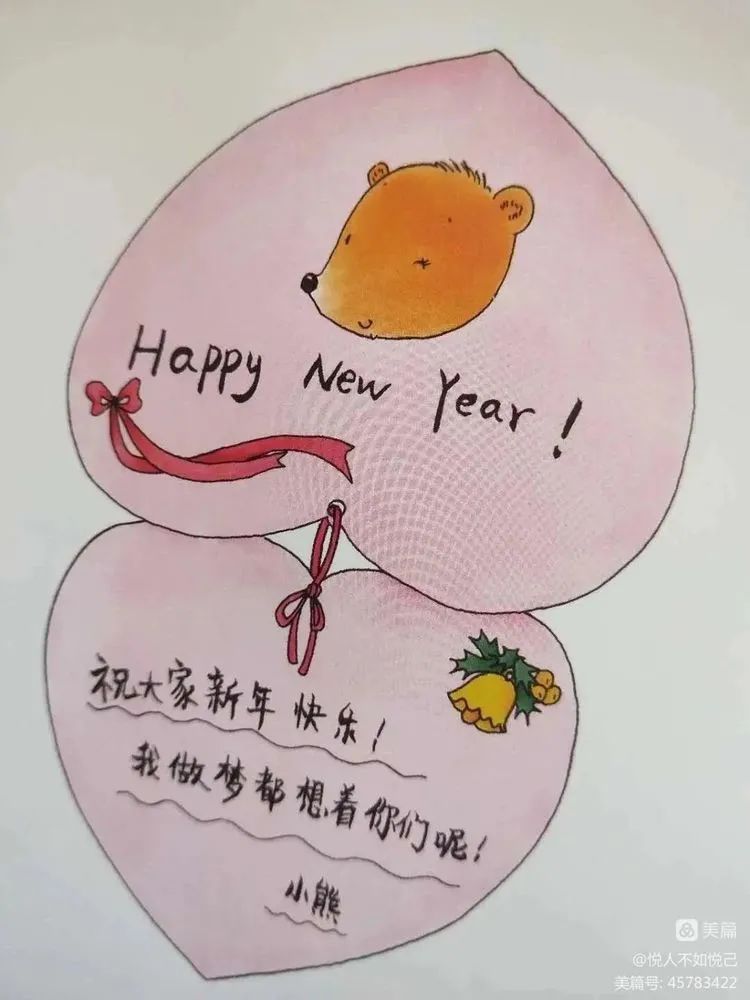 Happy New Year!
祝大家新年快乐!
我做梦都想着你们呢!
小熊
美篇
@悦人不如悦己
美篇号: 45783422